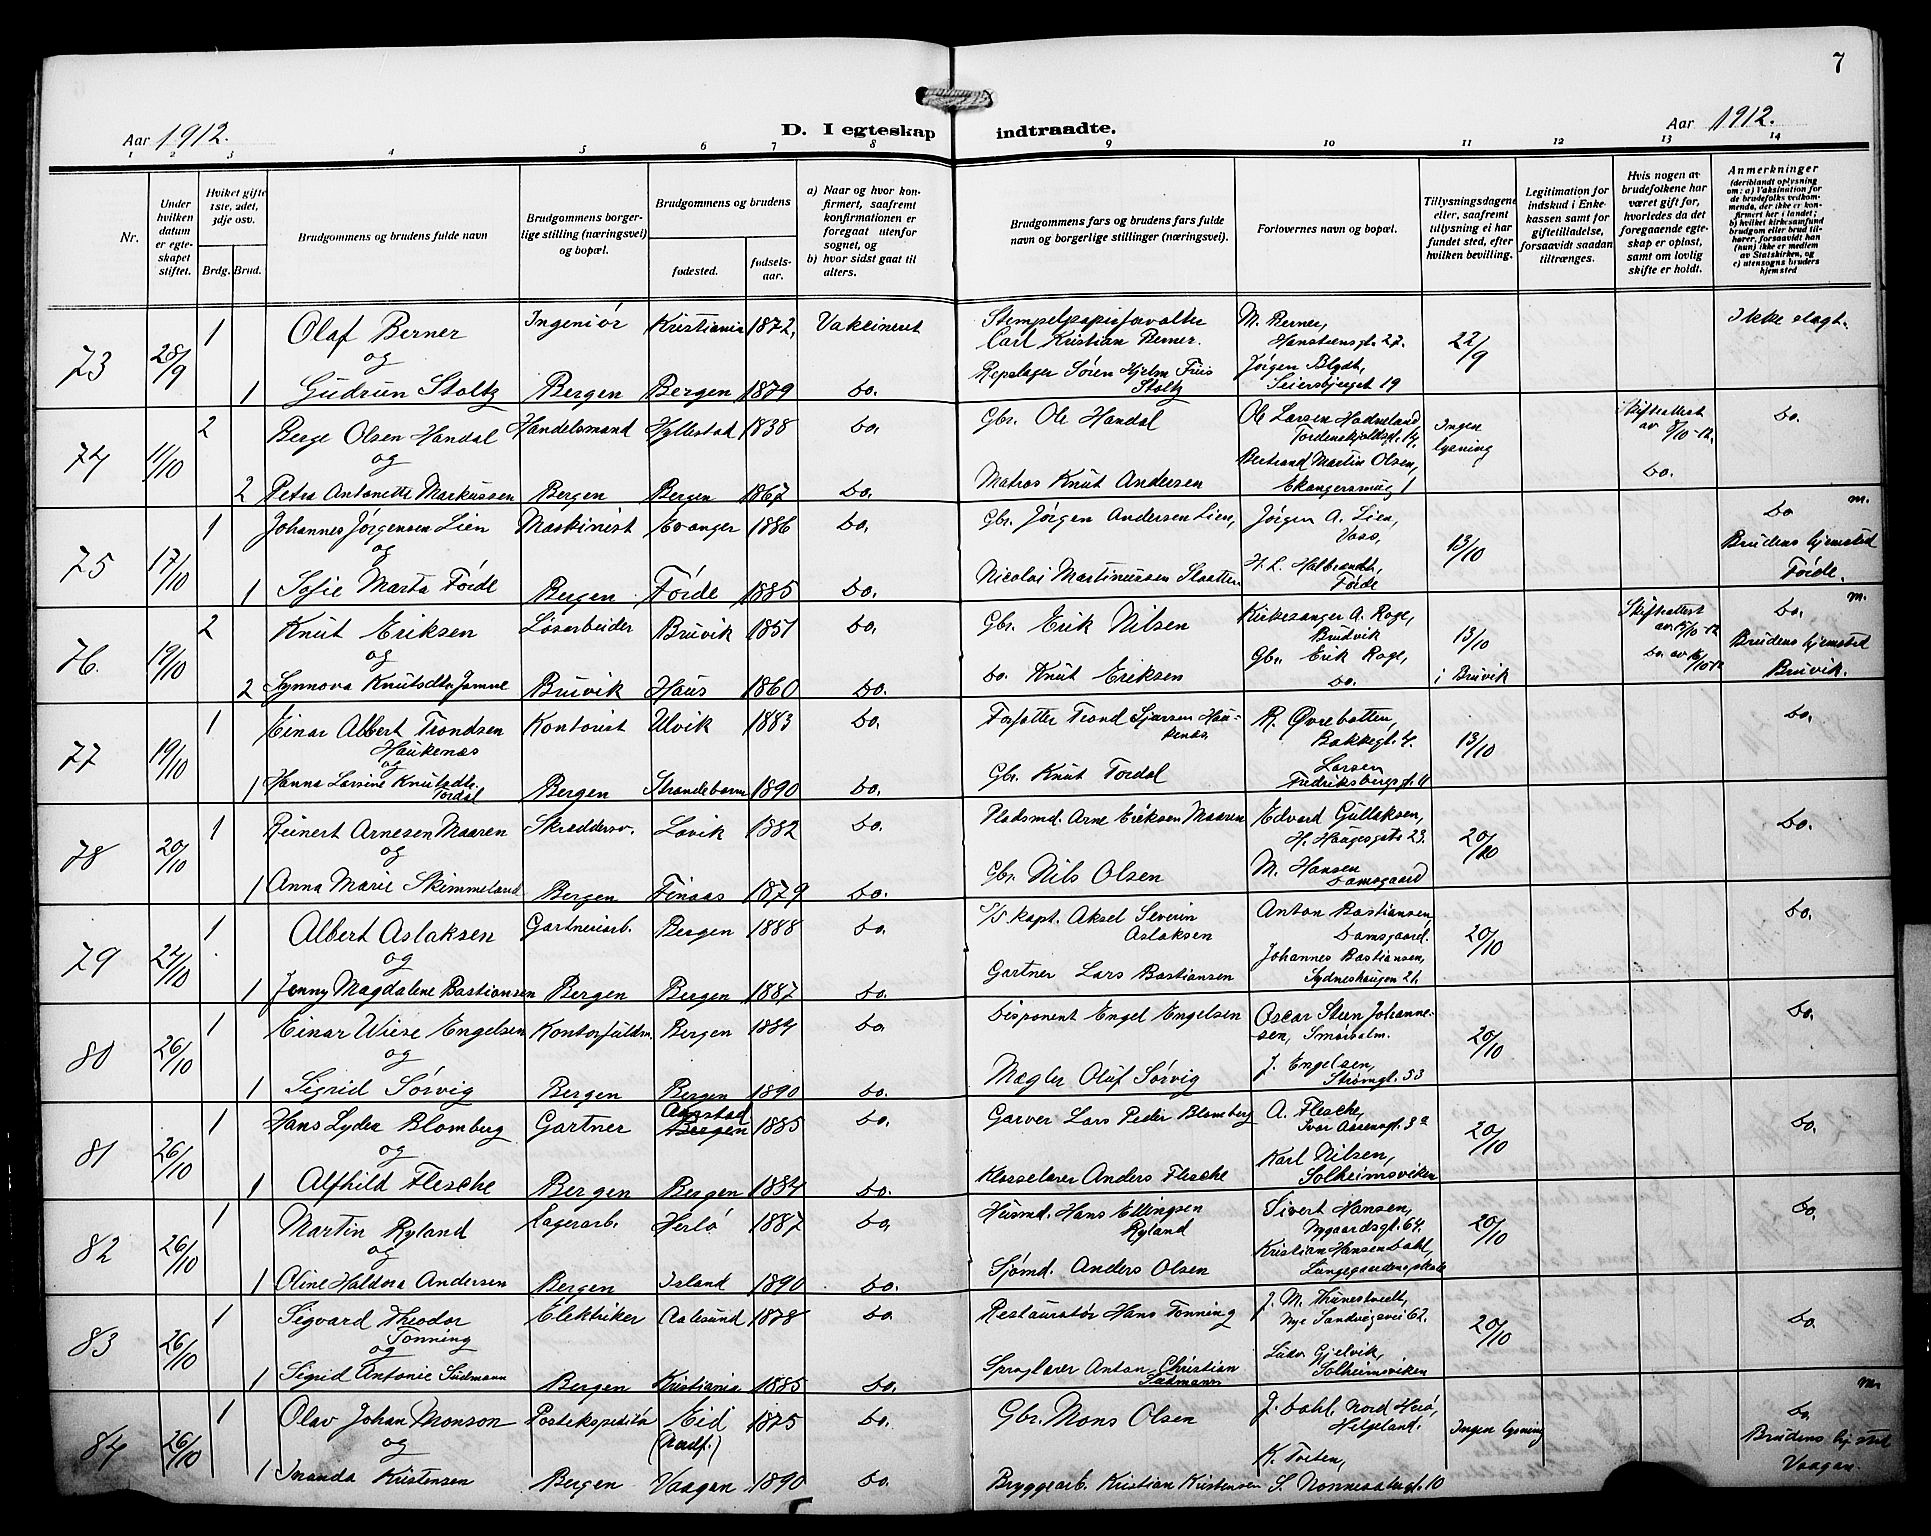 7
Aar 1912.
D. I egteskap indtraadte.
Aar 1912.
1 2 3 4 5 6 7 8 9 10 11 12 13 14
Nr.
Under hvilken datum er egteskapet stiftet.
Hviket gifte 1ste, 2det, 3dje osv.
Brdg. Brud.
Brudgommens og brudens fulde navn
Brudgommens borgerlige stilling (næringsvei) og bopæl.
Brudgommens og brudens
fødested.
fødselsaar.
a) Naar og hvor konfirmert, saafremt konfirmationen er foregaat utenfor sognet, og
b) hvor sidst gaat til alters.
Brudgommens fars og brudens fars fulde navn og borgerlige stillinger (næringsvei).
Forlovernes navn og bopæl.
Tillysningsdagene eller, saafremt tillysning ei har fundet sted, efter hvilken bevilling.
Legitimation for indskud i Enkekassen samt for giftetilladelse, forsaavidt saadan tiltrænges.
Hvis nogen av brudefolkene har været gift før, hvorledes da det foregaaende egteskap er opløst, samt om lovlig skifte er holdt.
Anmerkninger
(deriblandt oplysning om: a) Vaksination for de brudefolks vedkommende, der ikke er konfirmert her i landet; b) hvilket kirkesamfund brudgom eller brud tilhører, forsaavidt han (hun) ikke er medlem av Statskirken, og c) utensogns bruders hjemsted
73 28/9 1 Olaf Berner Ingeniør Kristiania 1872, Vakcineret Stempelpapirforvalter Carl Kristian Berner. M. Berner, Hansteensgt. 27. 22/9 Ikke slegt.
og
1 Gudrun Stoltz Bergen Bergen 1879 Do. Repslager Søren Hjelm Friis Stoltz Jørgen Blydt, Seiersbjerget 19
74 11/10 2 Berge Olsen Handal Handelsmand Hyllestad 1838 Do. Gbr. Ole Handal Ole Larsen Hadneland Tordenskjoldsgt. 14. Ingen lysning Skifteattest av 8/10-12. Do.
og
2 Petra Antonette Markussen Bergen Bergen 1867 Do. Matros Knut Andersen Bertrand Martin Olsen, Ekangersmug 1 Do.
75 17/10 1 Johannes Jørgensen Lien Maskinist Evanger 1886 Do. Gbr. Jørgen Andersen Lien, Jørgen A. Lien, Voss, 13/10 Do m.
og
1 Sofie Marta Førde Bergen Førde 1885 Do. Nicolai Martinussen Slaatten H. L. Halbrandt, Førde Brudens hjemsted Førde.
76. 19/10 2 Knut Eriksen Løsarbeider Bruvik 1857 Do. Gbr. Erik Nilsen Kirkesanger A. Roge, Brudvik 13/10 i Bruvik Skifteattest av 15/10-12 Do. m.
og
2 Synnøva Knutsdtr Jamne Bruvik Haus 1860 Do. Do. Knut Eriksen Gbr. Erik Roge, Do. Do. av 16/10-12 Brudens hjemsted Bruvik.
77 19/10 1 Einar Albert Trondsen Haukenæs Kontorist Ulvik 1883 Do. Forfatter Trond Sjursen Haukenæs R. Øvrebotten, Bakkegt. 4. 13/10 Do.
og
1 Hanna Larsine Knutsdtr. Tordal Bergen Strandebarm 1890 Do. Gbr. Knut Tordal Larsen Fredriksbergsgt. 11
78 20/10 1 Reinert Arnesen Maaren Skreddersv. Lavik 1882 Do. Pladsmd. Arne Eriksen Maaren Edvard Gullaksen, H. Haugesgate 23. 20/10 Do.
og
1 Anna Marie Skimmeland Bergen Finaas 1879 Do. Gbr. Nils Olsen M. Hansen Damsgaard
79 24/10 1 Albert Aslaksen Gartneriarb. Bergen 1888 Do. D/S kapt. Aksel Severin Aslaksen Anton Bastiansen, Damsgaard. 20/10 Do.
og
1 Jenny Magdalene Bastiansen Bergen Bergen 1887 Do. Gartner Lars Bastiansen Johannes Bastiansen, Sydneshaugen 21.
80 26/10 1 Einar Wiese Engelsen Kontorfuldm. Bergen 1884 Do. Disponent Engel Engelsen Oscar Steen Johannesen, Smørsalm. 20/10 Do.
og
1 Sigrid Sørvig Bergen Bergen 1890 Do. Mægler Oluf Sørvig J. Engelsen, Strømgt. 53
81 26/10 1 Hans Lyder Blomberg Gartner Aarstad Bergen 1885 Do. Garver Lars Peder Blomberg A. Flesche, Ivar Aasensgt. 3a 20/10 Do.
og
1 Alfhild Flesche Bergen Bergen 1884 Do. Klasselærer Anders Flesche Karl Nilsen, Solheimsviken
82 26/10 1 Martin Ryland Lagerarb. Herlø 1887 Do. Husmd. Hans Ellingsen Ryland Sivert Hansen, Nygaardsgt. 64. 20/10 Do.
og
1 Oline Haldora Andersen Bergen Island 1890 Do. Sjømd. Anders Olsen Kristian Hansen Dahl, Lungegaardensplads
83 26/10 1 Sigvard Theodor Tonning Elektriker Aalesund 1878 Do. Restauratør Hans Tonning J. M. Thunestvedt, Nye Sandvigsvei 62. 20/10 Do.
og
1 Sigrid Antonie Sudmann Bergen Kristiania 1885 Do. Sproglærer Anton Christian Sudmann Ludv. Gjelvik, Solheimsviken
84 26/10 1 Olav Johan Monson Postekspeditør Eid (Nordf.) 1875 Do. Gbr. Mons Olsen J. Dahl, Nord Herø, Helgeland. Ingen lysning Do. m.
og
1 Inanda Kristensen Bergen Vaagan 1890 Do. Bryggearb. Kristian Kristensen K. Toften, S. Nonnesætergt. 10 Brudens hjemsted Vaagan.